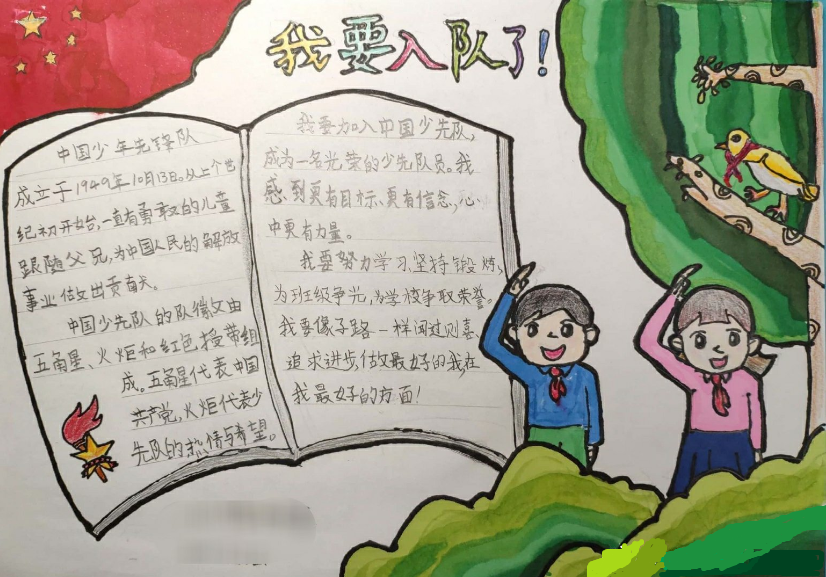 我要入队了！
中国少年先锋队
成立于1949年10月13日。从上个世
纪初开始，一直有勇敢的儿童
跟随父兄，为中国人民的解放
事业做出贡献。
中国少先队的队徽又由
五角星、火炬和红色授带组
成。五角星代表中国
共产党，火炬代表少
先队的热情与希望。
我要加入中国少先队，
成为一名光荣的少先队员。我
感到更有目标、更有信念，心
中更有力量。
我要努力学习，坚持锻炼，
为班级争光，为学校争取荣誉。
我要像子路一样闻过则喜
追求进步，做最好的我，在
我最好的方面！